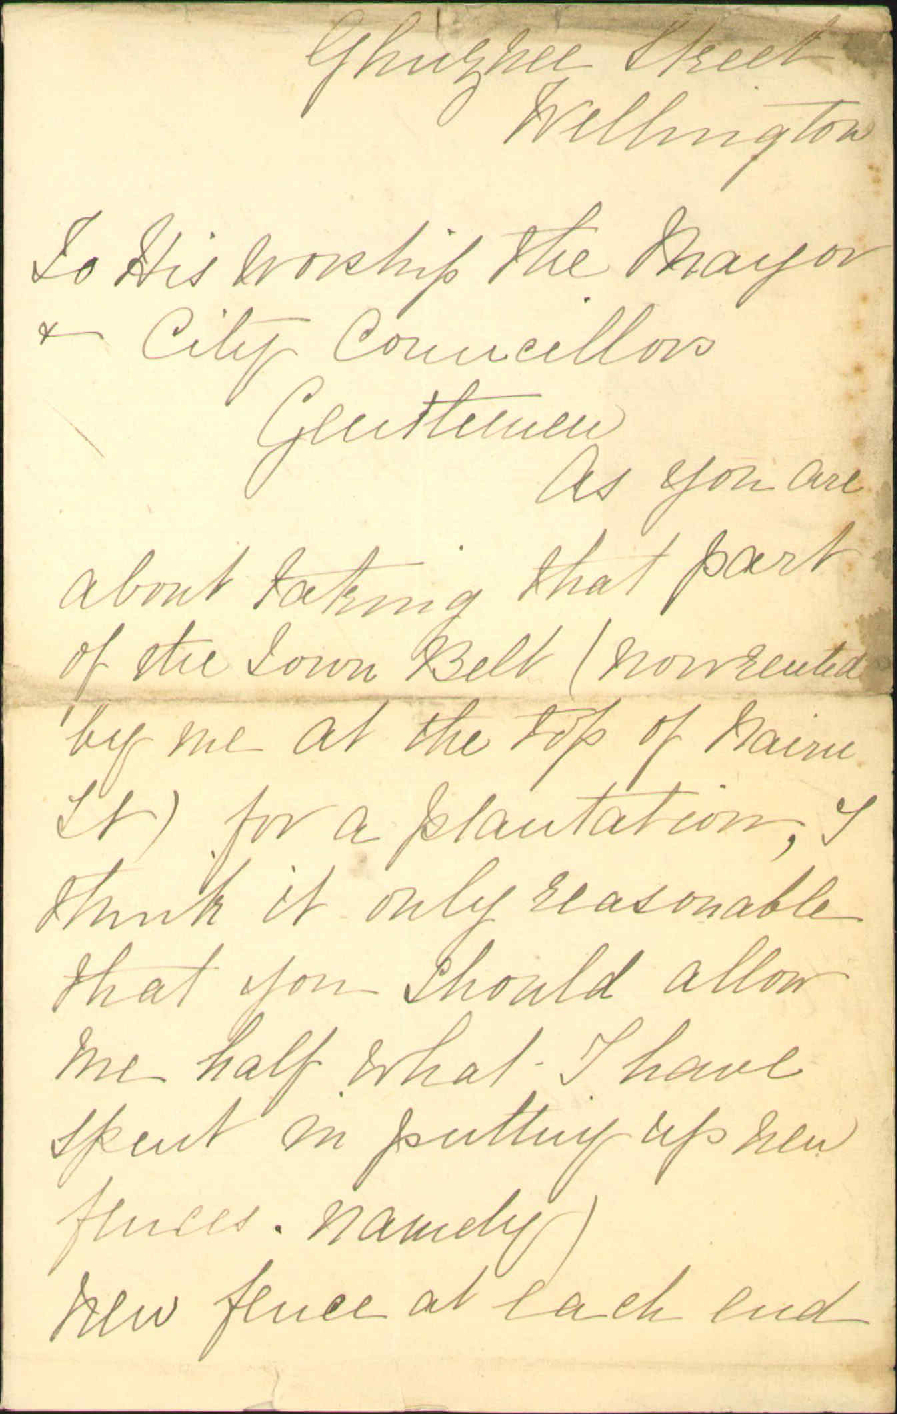 Ghuznee Street
Wellington
To His Worship the Mayor
& City Councillors
Gentlemen
As you are
about taking that part
of the Town Belt (now rented
by me at the top of Nairn
St) for a plantation, I
think it only reasonable
that you should allow
me half what I have
spent in putting up new
fences. namely)
New fence at each end